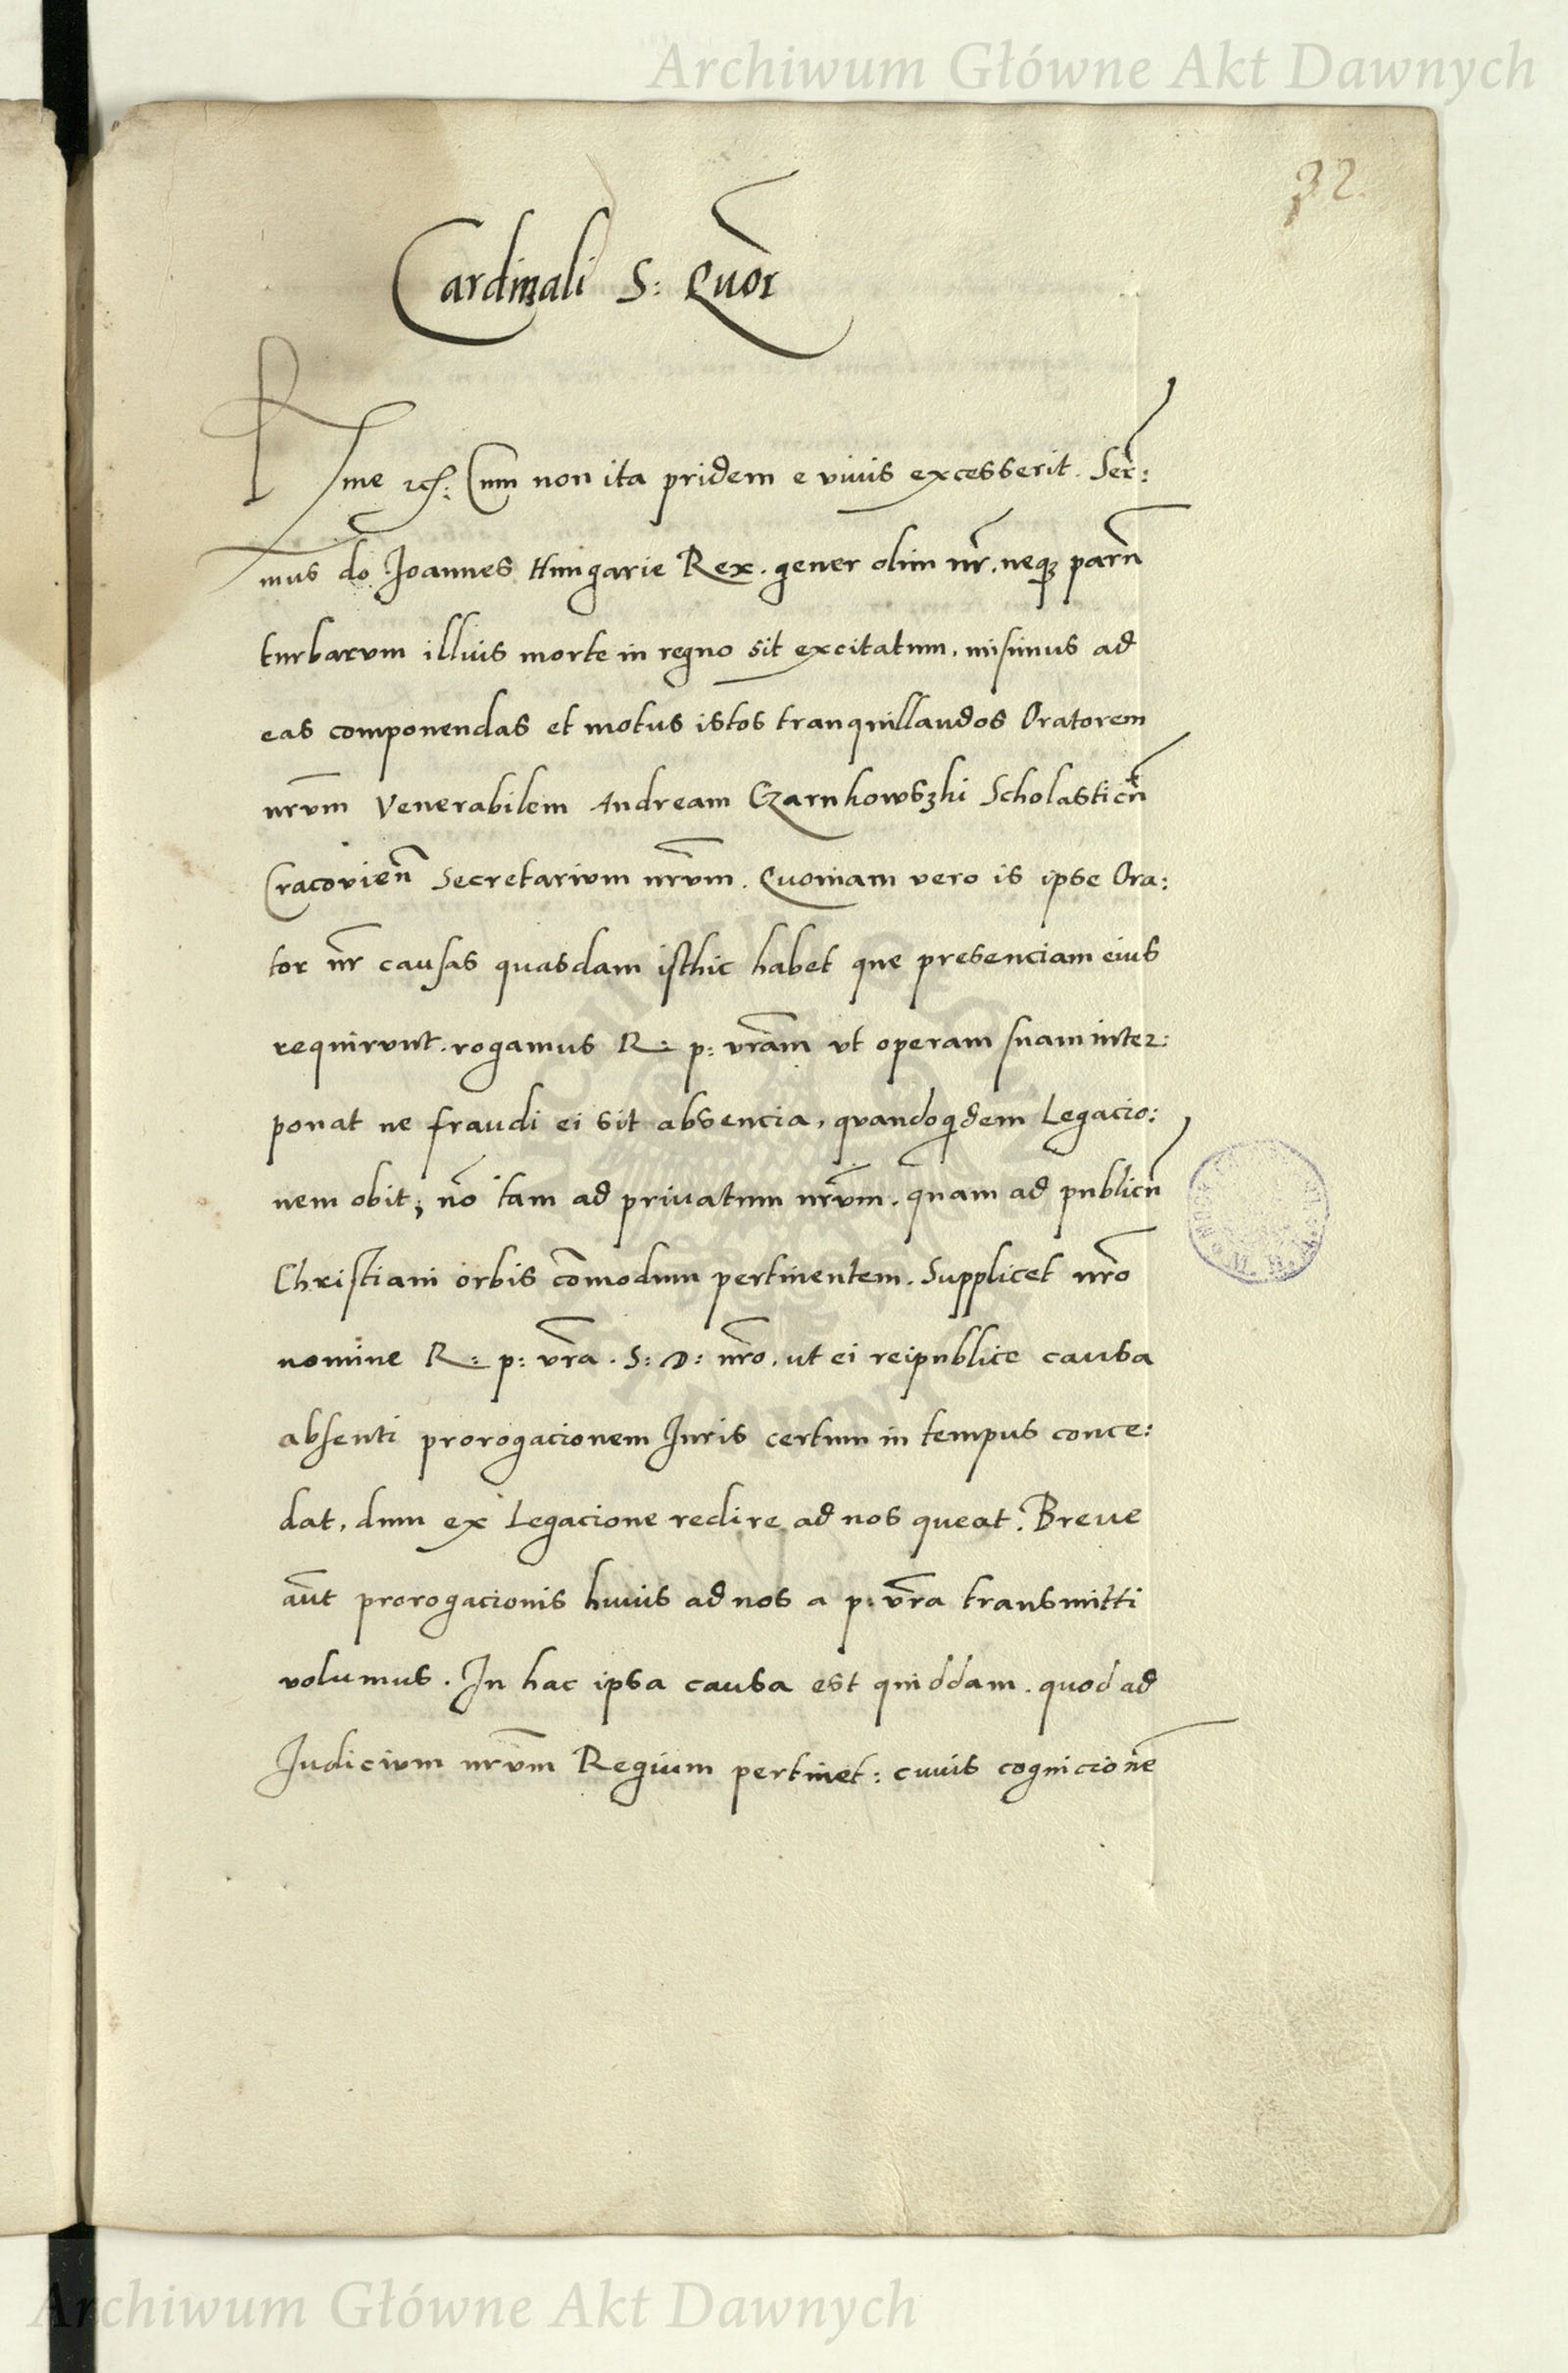 Archiwum Główne Akt Dawnych
32.
Cardinali S: Quor
Rme etc: Cum non ita pridem e viuis excesserit. Ser:
mus do. Joannes Hungarie Rex. gener olim nr̄. neq3 parū
turbarum illius morte in regno sit excitatum, misimus ad
eas componendas et motus istos tranquillandos Oratorem
nr̄um Venerabilem Andream Czarnkowszki Scholasticū
Cracovień Secretarium nr̄um. Quoniam vero is ipse Ora:
tor nr̄ causas quasdam isthic habet que presenciam eius
requirunt. rogamus R: p: vr̄am ut operam suam inter:
ponat ne fraudi ei sit absencia, quandoqidem Legacio:
nem obit, nō tam ad priuatum nr̄um. quam ad publicū
Christiani orbis cōmodum pertinentem. Supplicet nr̄o
nomine R: p: vr̄a. S: D: nr̄o, ut ei reipublice causa
absenti prorogacionem Juris certum in tempus conce:
dat, dum ex Legacione redire ad nos queat. Breue
aūt prorogacionis huius ad nos a p: vr̄a transmitti
volumus. In hac ipsa causa est quiddam. quod ad
Judicium nr̄um Regium pertinet: cuius cognicionē
Archiwum Główne Akt Dawnych